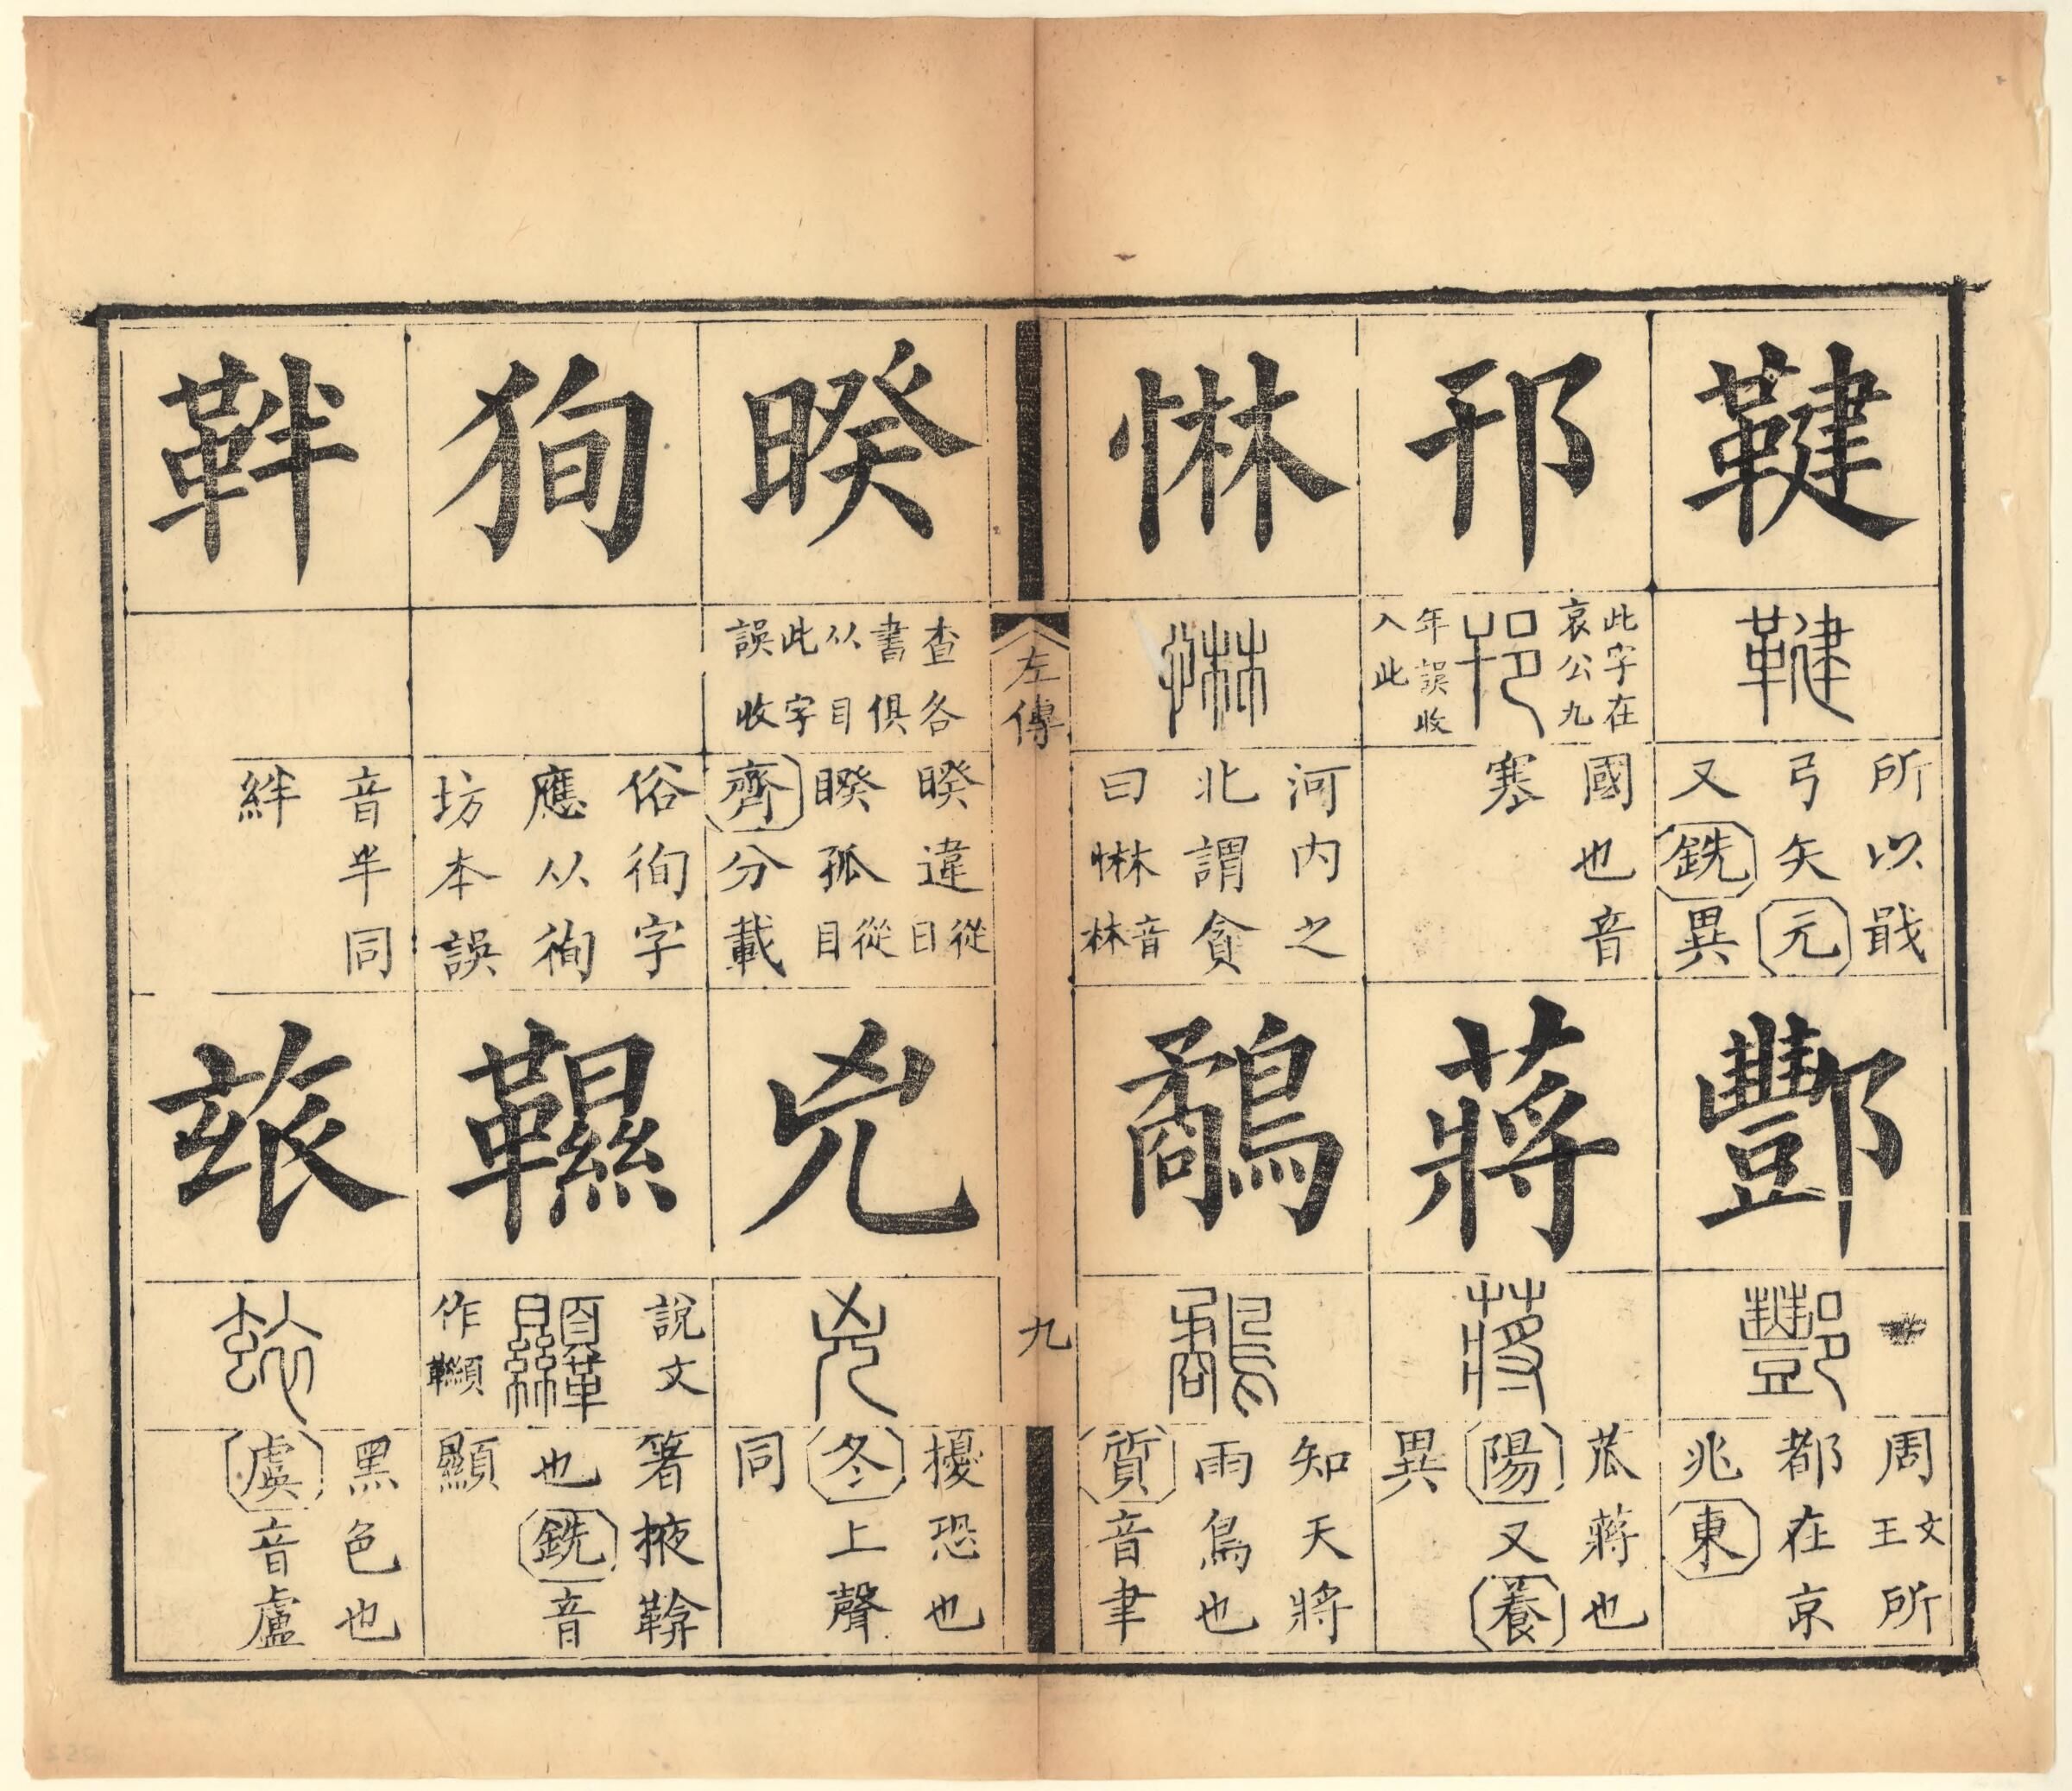 鞬
鞬
所以戢
弓矢元
又銑異
酆
酆
周文王所
都在京
兆東
邗
此字在
哀公九
邗
年誤收
入此
國也音
塞
蔣
蔣
苽蔣也
陽又養
異
惏
惏
河内之
北謂貪
曰惏音林
鷸
鷸
知天將
雨鳥也
質音聿
左傳
九
暌
查各
書俱
从目
此字
誤收
暌違從日
睽孤從目
齊分載
兇
兇
擾恐也
冬上聲
同
狥
俗徇字
應从徇
坊本誤
韅
說文
韅
作
箸掖鞥
也銑音
顯
靽
音半同
絆
玈
玈
黑色也
虞音盧